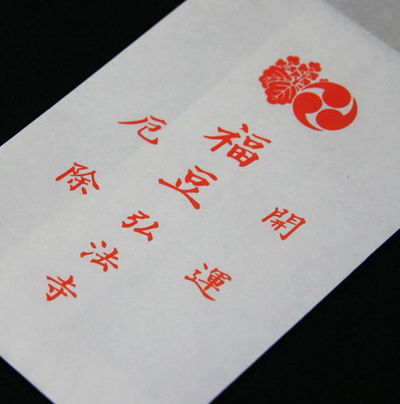 開運
福豆
厄除
弘法寺